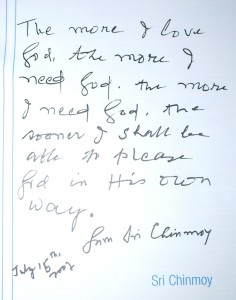 The more I love
God, the more I
need God. The more
I need God, the
sooner I shall be
able to please
God in His own
way.
from Sri Chinmoy
July 15th, 2002
Sri Chinmoy